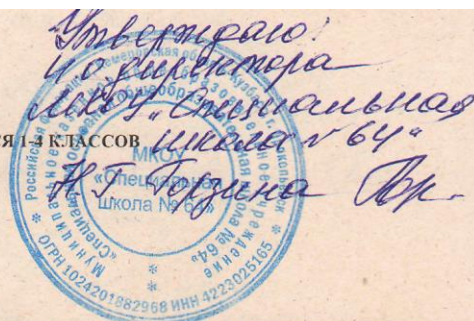 Утверждаю!
и о директора
МКОУ "Специальная
школа № 64"
СЯ 1-4 КЛАССОВ
Н.Г.
МКОУ
«Специальная
школа № 64»
ОГРН 1024201882968 ИНН 4223025165